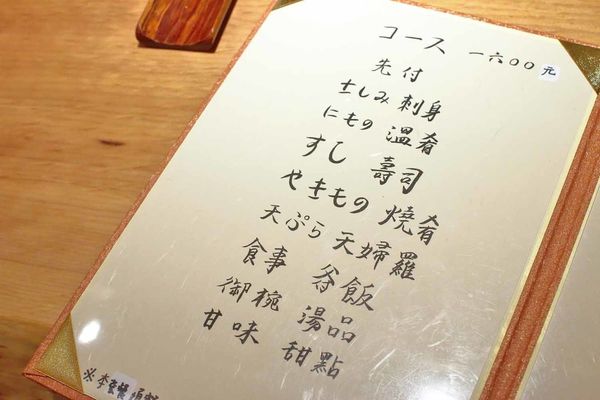 コース 一六〇〇元
先付
さしみ 刺身
にもの 溫肴
すし 壽司
やきもの 燒肴
天ぷら 天婦羅
食事 飯
御椀 湯品
甘味 甜點
※